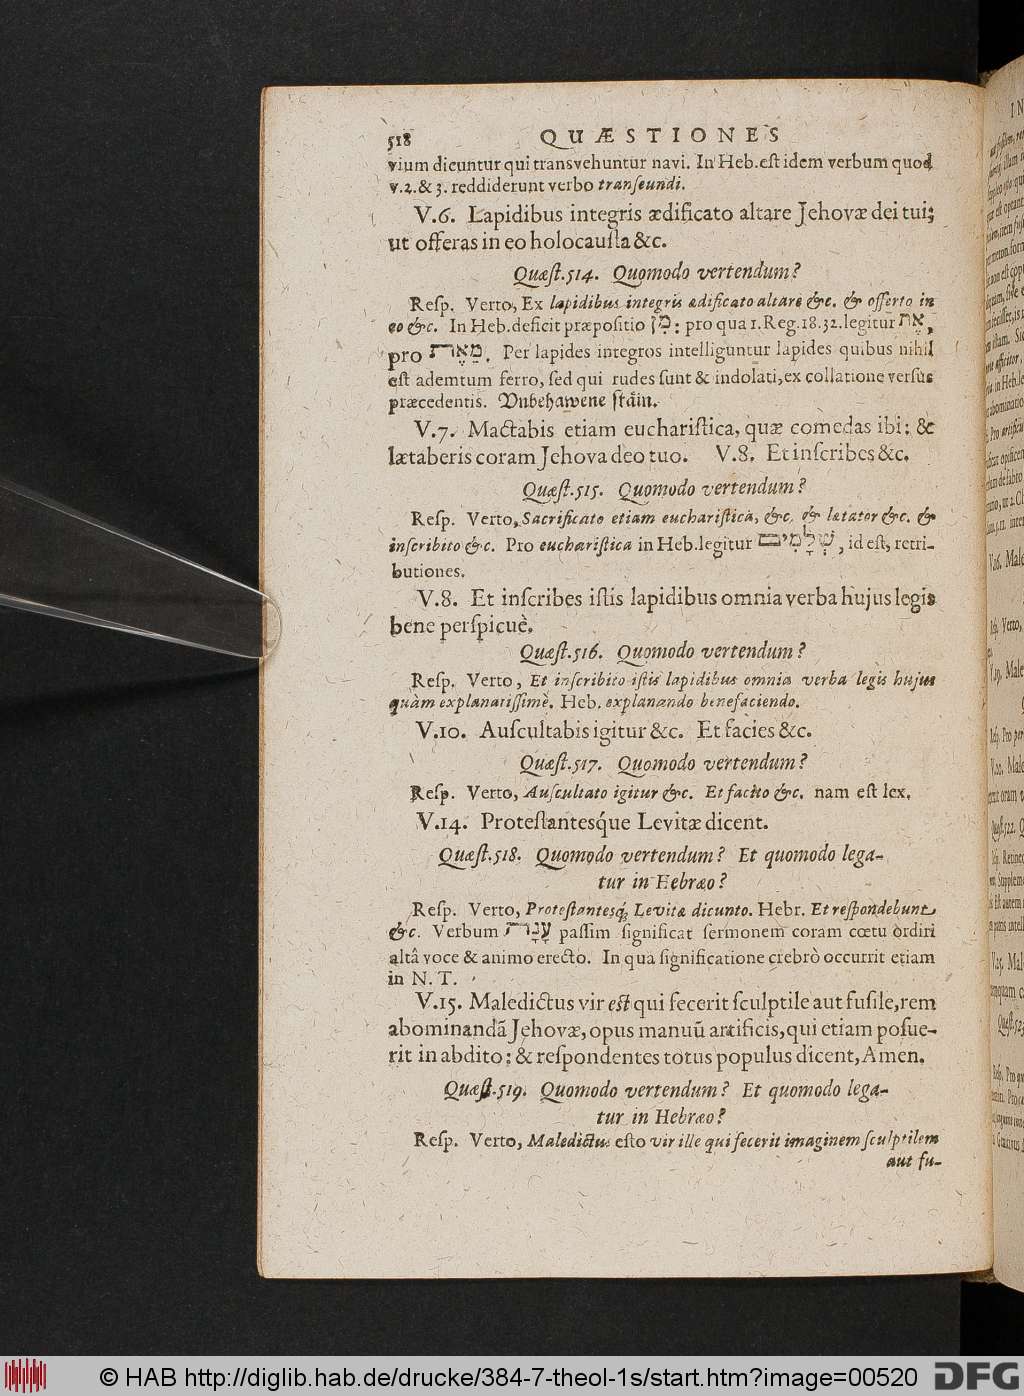 518 QUÆSTIONES
vium dicuntur qui transvehuntur navi. In Heb. eſt idem verbum quod
v.2. & 3. reddiderunt verbo tranſeundi.
V.6. Lapidibus integris ædificato altare Jehovæ dei tui;
ut offeras in eo holocauſta &c.
Quæſt. 514. Quomodo vertendum?
Reſp. Verto, Ex lapidibus integris ædificato altare &c. & offerto in
eo &c. In Heb. deficit præpoſitio מִן: pro qua 1. Reg. 18. 32. legitur אֶת,
pro מֵאֶת. Per lapides integros intelliguntur lapides quibus nihil
eſt ademtum ferro, ſed qui rudes ſunt & indolati, ex collatione verſus
præcedentis. Vnbehawene ſtåin.
V.7. Mactabis etiam euchariſtica, quæ comedas ibi: &
lætaberis coram Jehova deo tuo. V.8. Et inſcribes &c.
Quæſt. 515. Quomodo vertendum?
Reſp. Verto, Sacrificato etiam euchariſtica, &c. & lætator &c. &
inſcribito &c. Pro euchariſtica in Heb. legitur שְׁלָמִים, id eſt, retri-
butiones.
V.8. Et inſcribes iſtis lapidibus omnia verba hujus legis
bene perſpicuè.
Quæſt. 516. Quomodo vertendum?
Reſp. Verto, Et inſcribito iſtis lapidibus omnia verba legis hujus
quàm explanatiſſimè. Heb. explanando benefaciendo.
V.10. Auſcultabis igitur &c. Et facies &c.
Quæſt. 517. Quomodo vertendum?
Reſp. Verto, Auſcultato igitur &c. Et facito &c. nam eſt lex.
V.14. Proteſtantesq́ue Levitæ dicent.
Quæſt. 518. Quomodo vertendum? Et quomodo lega-
tur in Hebræo?
Reſp. Verto, Proteſtantesq́; Levitæ dicunto. Hebr. Et reſpondebunt
&c. Verbum עָנָה paſſim ſignificat ſermonem coram cœtu ordiri
altâ voce & animo erecto. In qua ſignificatione crebrò occurrit etiam
in N. T.
V.15. Maledictus vir eſt qui fecerit ſculptile aut fuſile, rem
abominandã Jehovæ, opus manuũ artificis, qui etiam poſue-
rit in abdito: & reſpondentes totus populus dicent, Amen.
Quæſt. 519. Quomodo vertendum? Et quomodo lega-
tur in Hebræo?
Reſp. Verto, Maledictus eſto vir ille qui fecerit imaginem ſculptilem
aut fu-
© HAB http://diglib.hab.de/drucke/384-7-theol-1s/start.htm?image=00520
DFG